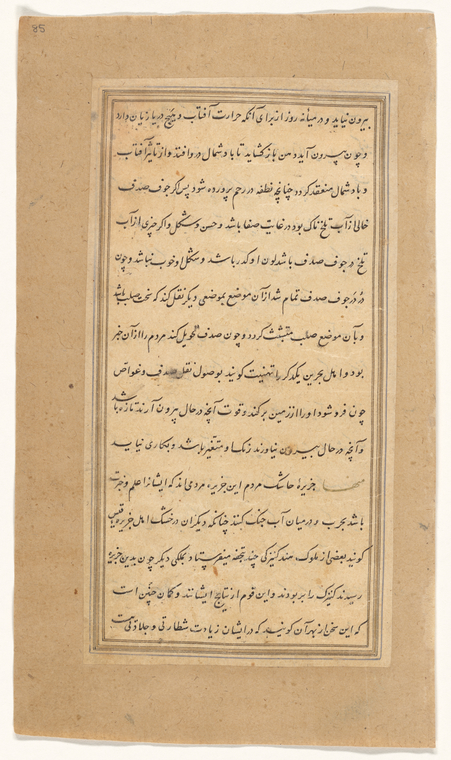 85
بیرون نیاید و در میانه روز از برای آنکه حرارت آفتاب و تهیج دریا زیان دارد
و چون بیرون آید دهن باز کشاید تا باد شمال در او افتد و از تاثیر آفتاب
و باد شمال منعقد کردد چنانچه نطفه در رحم پرورده شود پس اکر جوف صدف
خالی از آب تلخ ناک بود در غایت صفا باشد و حسن و شکل و اکر چیزی از آب
تلخ در جوف صدف باشد لون او کدر باشد و شکل و خوب نباشد و چون
در در جوف صدف تمام شد از آن موضع بموضعی دیکر نقل کند که سخت صلب باشد
و بآن موضع صلب متشبث کردد و چون صدف تحویل کند مردم را از آن خبر
بود و اهل بحرین یکدکر را تهنیت کویند بوصول نقل صدف و غواص
چون فرو شود او را از زمین برکند و قوت آنچه در حال بیرون آرند تازه باشد
و آنچه در حال بیرون نیاورند زنک او متغیر باشد و بکاری نیاید
منها جزیرهٔ جاشک مردم این جزیره مردمی‌اند که ایشانرا علم و خبرت
باشد بحرب و در میان آب جنک کنند چنانکه دیکران در خشک اهل جزیره قیس
کویند بعضی از ملوک هند کنیزکی چند تحفه میفرستاد بملکی دیکر چون بدین جزیره
رسیدند کنیزک را بربودند و این قوم از نتایج ایشانند و کمان چنین است
که این سخن از بهر آن کویند که در ایشان زیادت شطارتی و جلادتی هست